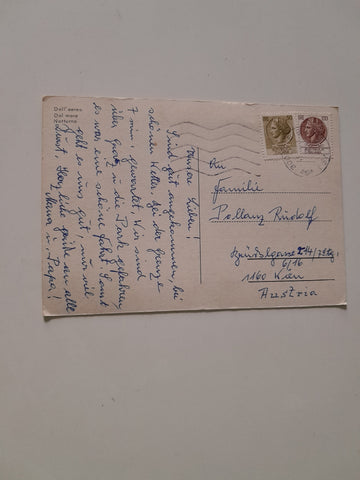 Dall'aereo
Dal mare
Notturno
Unsere Lieben!
Sind gut angekommen, bei
schönem Wetter. Bei der Grenze
7 min. gewartet. Wir sind
über Graz in die Pack gefahren
es war eine schöne Fahrt. Sonst
geht es uns gut, nur viel
Durst. Herzliche Grüße an alle
Mama u. Papa!
An
Familie
Pollanz Rudolf
6/16
1160 Wien
Austria